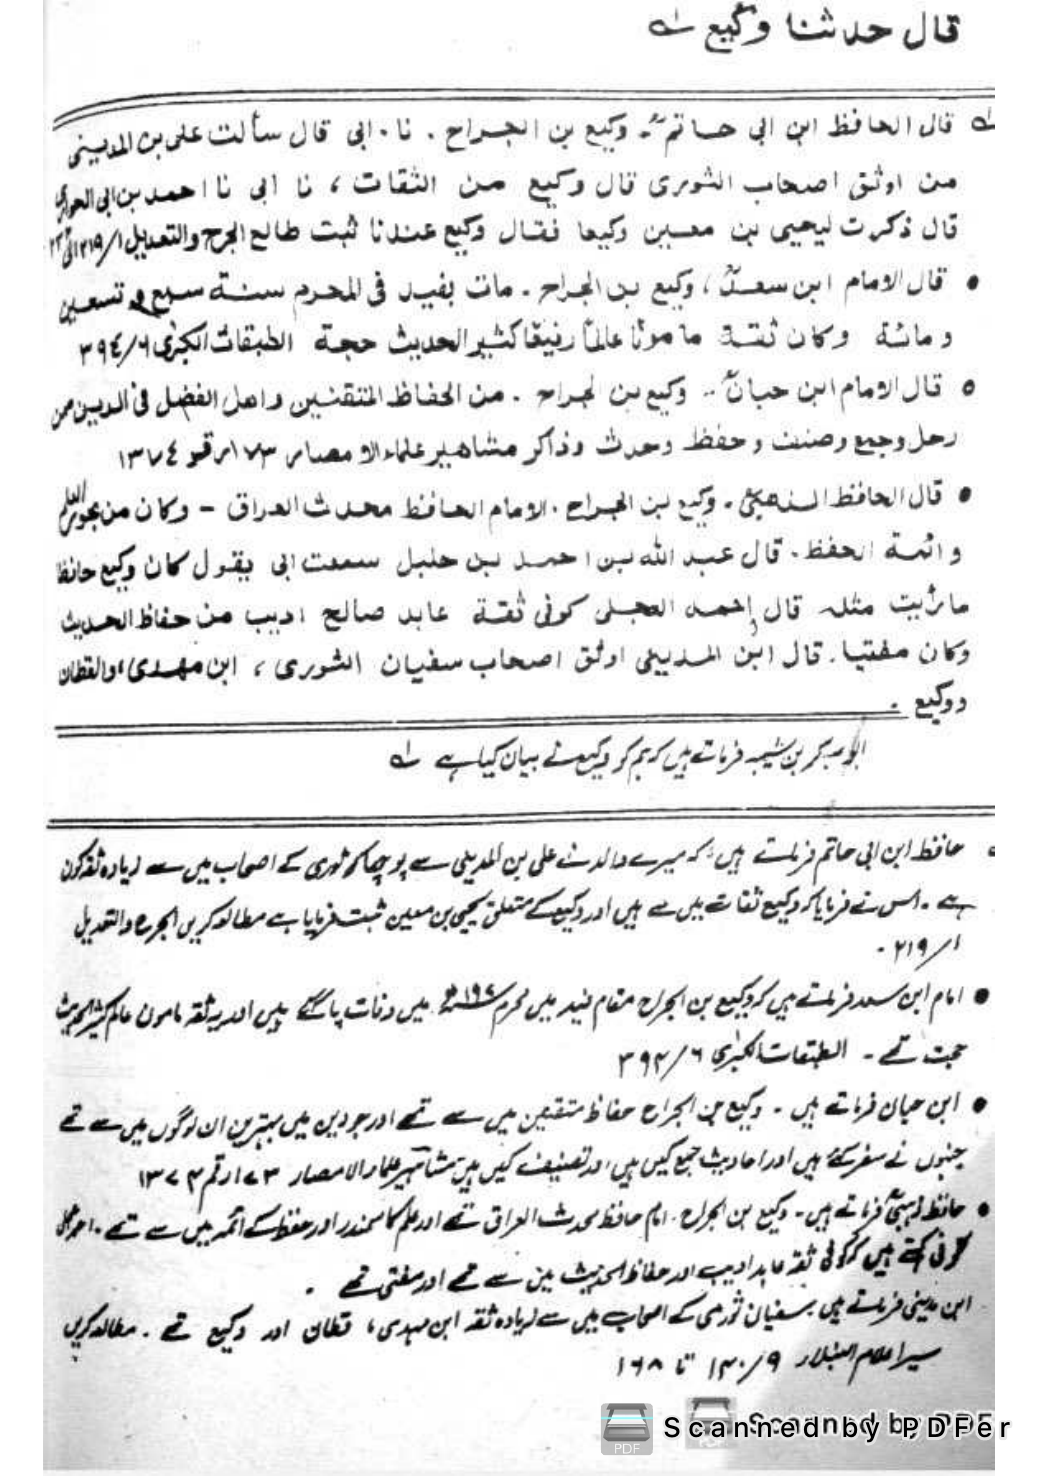 قال حدثنا وكيع له
له قال الحافظ ابن ابي حاتم وكيع بن الجراح . نا . ابي قال سألت علي بن المديني
من اوثق اصحاب الثوري قال وكيع من الثقات ، نا ابي نا احمد بن ابي الحواري
قال ذكرت ليحيى بن معين وكيعا فقال وكيع عندنا ثبت طالع الجرح والتعديل ٢١٩/١
• قال الامام ابن سعد ، وكيع بن الجراح . مات بفيد في المحرم سنة سبع و تسعين
و مائة وكان ثقة مامونا عالما رفيعا كثير الحديث حجة الطبقات الكبرى ٣٩٤/٦
• قال الامام ابن حبان .. وكيع بن الجراح . من الحفاظ المتقنين واهل الفضل في الدين ممن
رحل وجمع وصنف وحفظ وحدث وذاكر مشاهير علماء الامصار ١٧٣ رقم ١٣٧٤
• قال الحافظ الذهبي . وكيع بن الجراح . الامام الحافظ محدث العراق – وكان من بحور العلم
وائمة الحفظ . قال عبد الله بن احمد بن حنبل سمعت ابي يقول كان وكيع حافظا
ما رأيت مثله قال احمد العجلي كوفي ثقة عابد صالح اديب من حفاظ الحديث
وكان مفتيا . قال ابن المديني اوثق اصحاب سفيان الثوري ، ابن مهدي ، والقطان
ووكيع .
ابوبکر بن شیبہ فرماتے ہیں کہ ہم کو وکیع نے بیان کیا ہے لہ
حافظ ابن ابی حاتم فرماتے ہیں کہ میرے والد نے علی بن المدینی سے پوچھا کہ ثوری کے اصحاب میں سے زیادہ ثقہ کون
ہے ۔ اس نے فرمایا کہ وکیع ثقات میں سے ہیں اور وکیع کے متعلق یحیی بن معین ثبت فرمایا ہے مطالعہ کریں الجرح والتعدیل
٢١٩/١ ۔
• امام ابن سعد فرماتے ہیں کہ وکیع بن الجراح مقام فید میں محرم ١٩٧ھ میں وفات پا گئے ہیں اور یہ ثقہ مامون عالم کثیر الحدیث
حجت تھے ۔ الطبقات الکبری ٣٩٤/٦
• ابن حبان فرماتے ہیں ۔ وکیع بن الجراح حفاظ متقنین میں سے تھے اور جو دین میں بہترین ان لوگوں میں سے تھے
جنہوں نے سفر کئے ہیں اور احادیث جمع کیں ہیں اور تصنیف کیں ہیں مشاہیر علماء الامصار ١٧٣ رقم ١٣٧٤
• حافظ ذہبی فرماتے ہیں ۔ وکیع بن الجراح . امام حافظ محدث العراق تھے اور علم کا سمندر اور حفظ کے ائمہ میں سے تھے ۔ احمد عجلی
کوفی کہتے ہیں کہ کوفی ثقہ عابد ادیب اور حفاظ الحدیث میں سے تھے اور مفتی تھے ۔
ابن مدینی فرماتے ہیں سفیان ثوری کے اصحاب میں سے زیادہ ثقہ ابن مہدی ، قطان اور وکیع تھے ۔ مطالعہ کریں
سیر اعلام النبلاء ١٤٠/٩ تا ١٦٨
Scanned by PDFer
Scanned by PDF